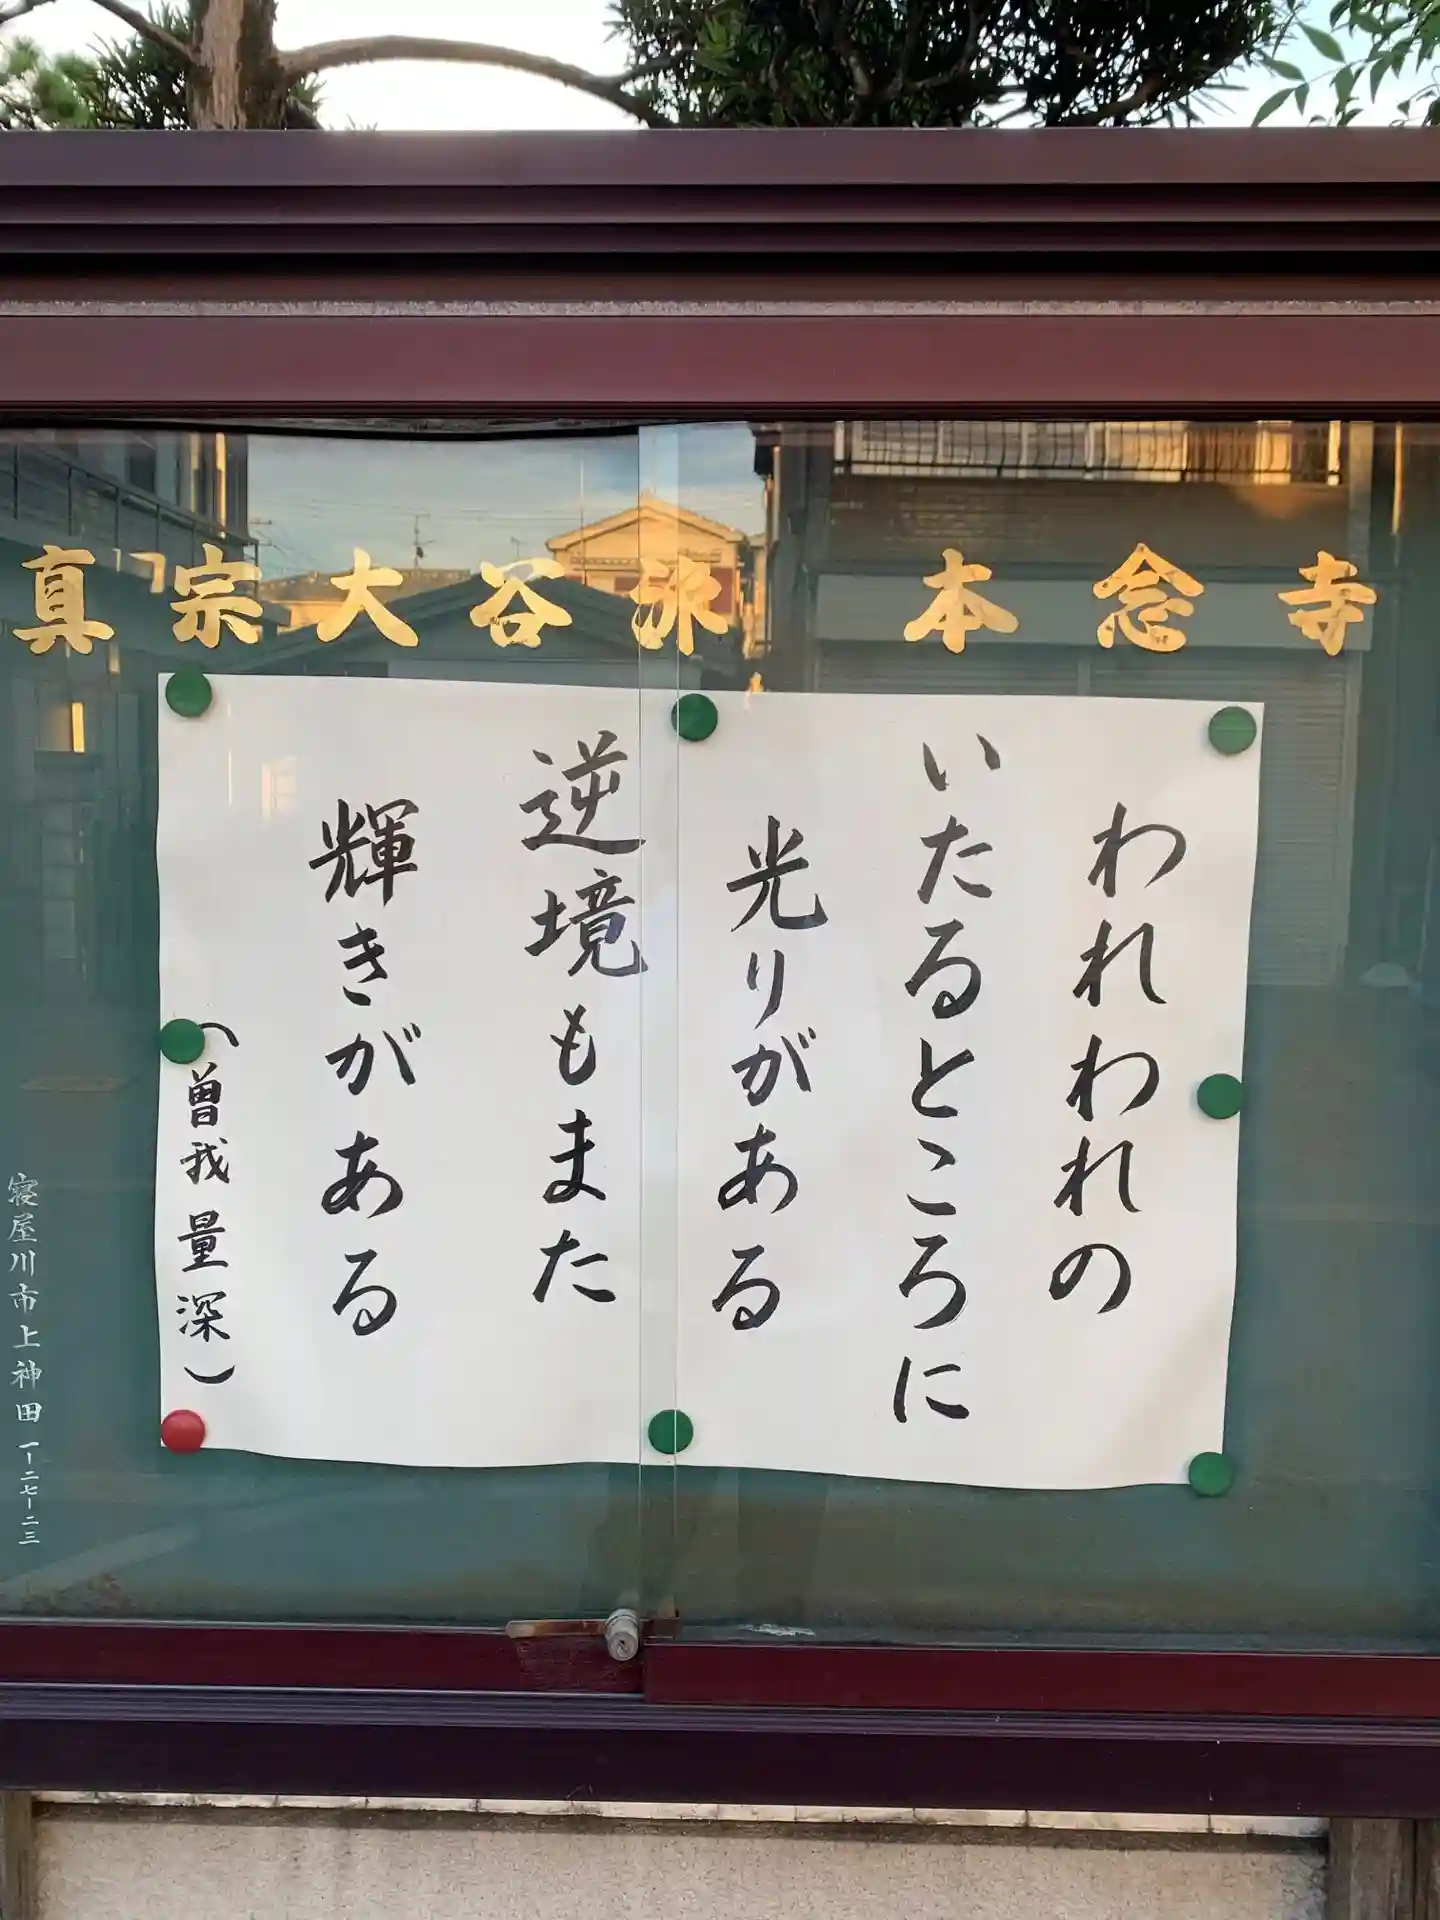 真宗大谷派 本念寺
われわれの
いたるところに
光りがある
逆境もまた
輝きがある
(曽我量深)
寝屋川市上神田一ー二七ー二三